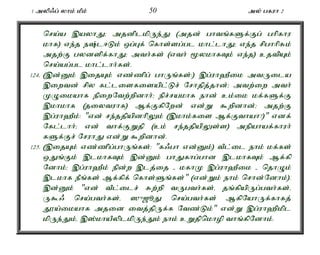 1 அலிஃப் லாம் மீம் 50 அல் பகரா 2
செய்ய இயலாது; அதனிடமிருந்து (அதன் பாவங்களுக்குப் பரிகார
மாக) எந்த நஷ்டஈடும் ஒப்புக் கொள்ளப்பட மாட்டாது; எந்த சிபாரிசும்
அதற்கு பலனளிக்காது; அவர்கள் (எவர் மூலமாகவும் எந்த) உதவியும்
செய்யப்பட மாட்டார்கள்.
124. (இன்னும் இதையும் எண்ணிப் பாருங்கள்:) இப்ராஹீமை அவருடைய
இறைவன் சில கட்டளைகளையிட்டுச் சோதித்தான்; அவற்றை அவர்
முழுமையாக நிறைவேற்றினார்; நிச்சயமாக நான் உம்மை மக்களுக்கு
இமாமாக (தலைவராக) ஆக்குகிறேன் என்று கூறினான்; அதற்கு
இப்ராஹீம்: "என் சந்ததியினரிலும் (இமாம்களை ஆக்குவாயா?)" எனக்
கேட்டார்; என் வாக்குறுதி (உம் சந்ததியிலுள்ள) அநியாயக்காரர்
களுக்குச் சேராது என்று கூறினான்.
125. (இதையும் எண்ணிப்பாருங்கள்: "கஃபா என்னும்) வீட்டை நாம் மக்கள்
ஒதுங்கும் இடமாகவும் இன்னும் பாதுகாப்பான இடமாகவும் ஆக்கி
னோம்; இப்ராஹீம் நின்ற இடத்தை - மகாமு இப்ராஹீமை - தொழும்
இடமாக நீங்கள் ஆக்கிக் கொள்ளுங்கள்" (என்றும் நாம் சொன்னோம்);
இன்னும் "என் வீட்டைச் சுற்றி வருபவர்கள், தங்கியிருப்பவர்கள்,
ருகூஃ செய்பவர்கள், ஸுஜூது செய்பவர்கள் ஆகியோருக்காகத்
தூய்மையாக அதனை வைத்திருக்க வேண்டும்" என்று இப்ராஹீமிட
மிருந்தும், இஸ்மாயீலிடமிருந்தும் நாம் உறுதிமொழி வாங்கினோம்.